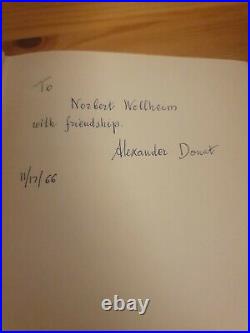 To
Norbert Wollheim
with friendship.
Alexander Donat
11/17/66